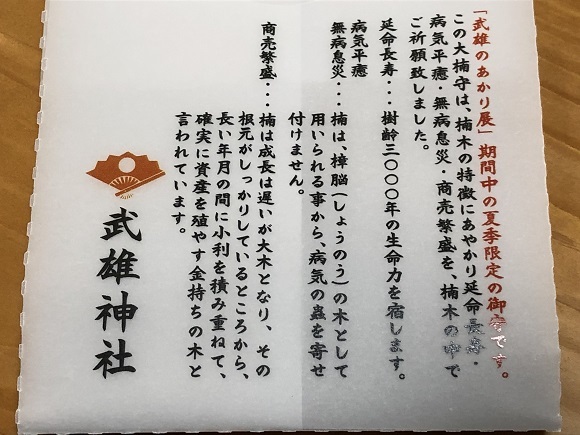 「武雄のあかり展」期間中の夏季限定の御守です。
この大楠守は、楠木の特徴にあやかり延命長寿・
病気平癒・無病息災・商売繁盛を、楠木の中で
ご祈願致しました。
延命長寿・・・樹齢三〇〇〇年の生命力を宿します。
病気平癒
無病息災・・・楠は、樟脳(しょうのう)の木として
用いられる事から、病気の蟲を寄せ
付けません。
商売繁盛・・・楠は成長は遅いが大木となり、その
根元がしっかりしているところから、
長い年月の間に小利を積み重ねて、
確実に資産を殖やす金持ちの木と
言われています。
武雄神社